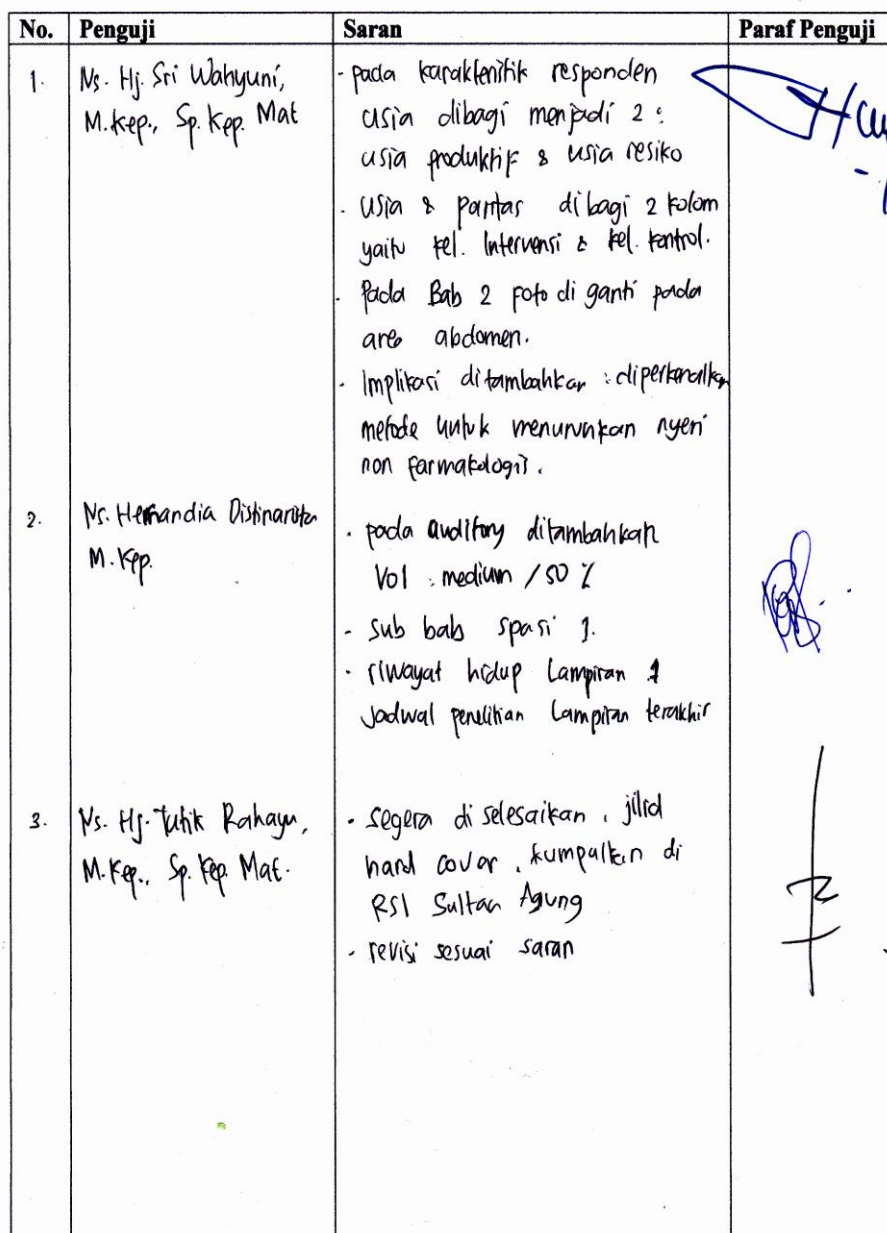 No. Penguji Saran Paraf Penguji
1. Ns. Hj. Sri Wahyuni,
M.Kep., Sp. Kep. Mat
- pada karakteristik responden
usia dibagi menjadi 2 :
usia produktif & usia resiko
- usia & paritas dibagi 2 kolom
yaitu kel. Intervensi & kel. kontrol.
- Pada Bab 2 foto di ganti pada
area abdomen.
- Implikasi ditambahkan : diperkenalkan
metode untuk menurunkan nyeri
non farmakologis.
2. Ns. Hernandia Distinarista
M.Kep.
- pada auditory ditambahkan
Vol : medium / 50 %
- sub bab spasi 1.
- riwayat hidup Lampiran 1
Jadwal penelitian Lampiran terakhir
3. Ns. Hj. Tutik Rahayu,
M.Kep., Sp. Kep. Mat.
- segera di selesaikan, jilid
hard cover, kumpulkan di
RSI Sultan Agung
- revisi sesuai saran